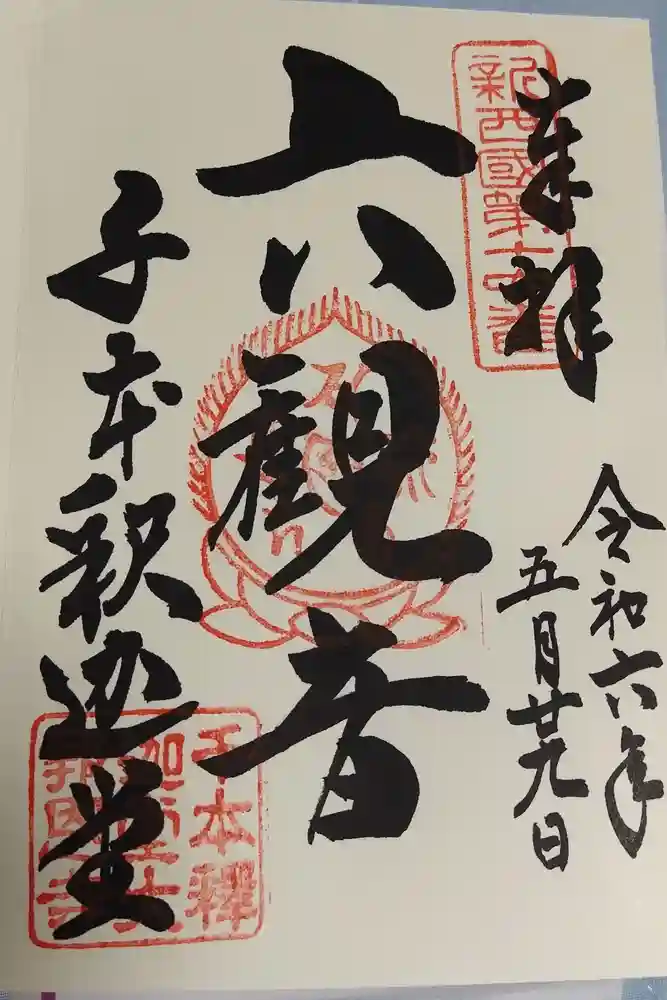 奉拝
令和六年
五月廿九日
新西國第十六番
六観音
千本釈迦堂
千本釋
迦堂大
報恩寺